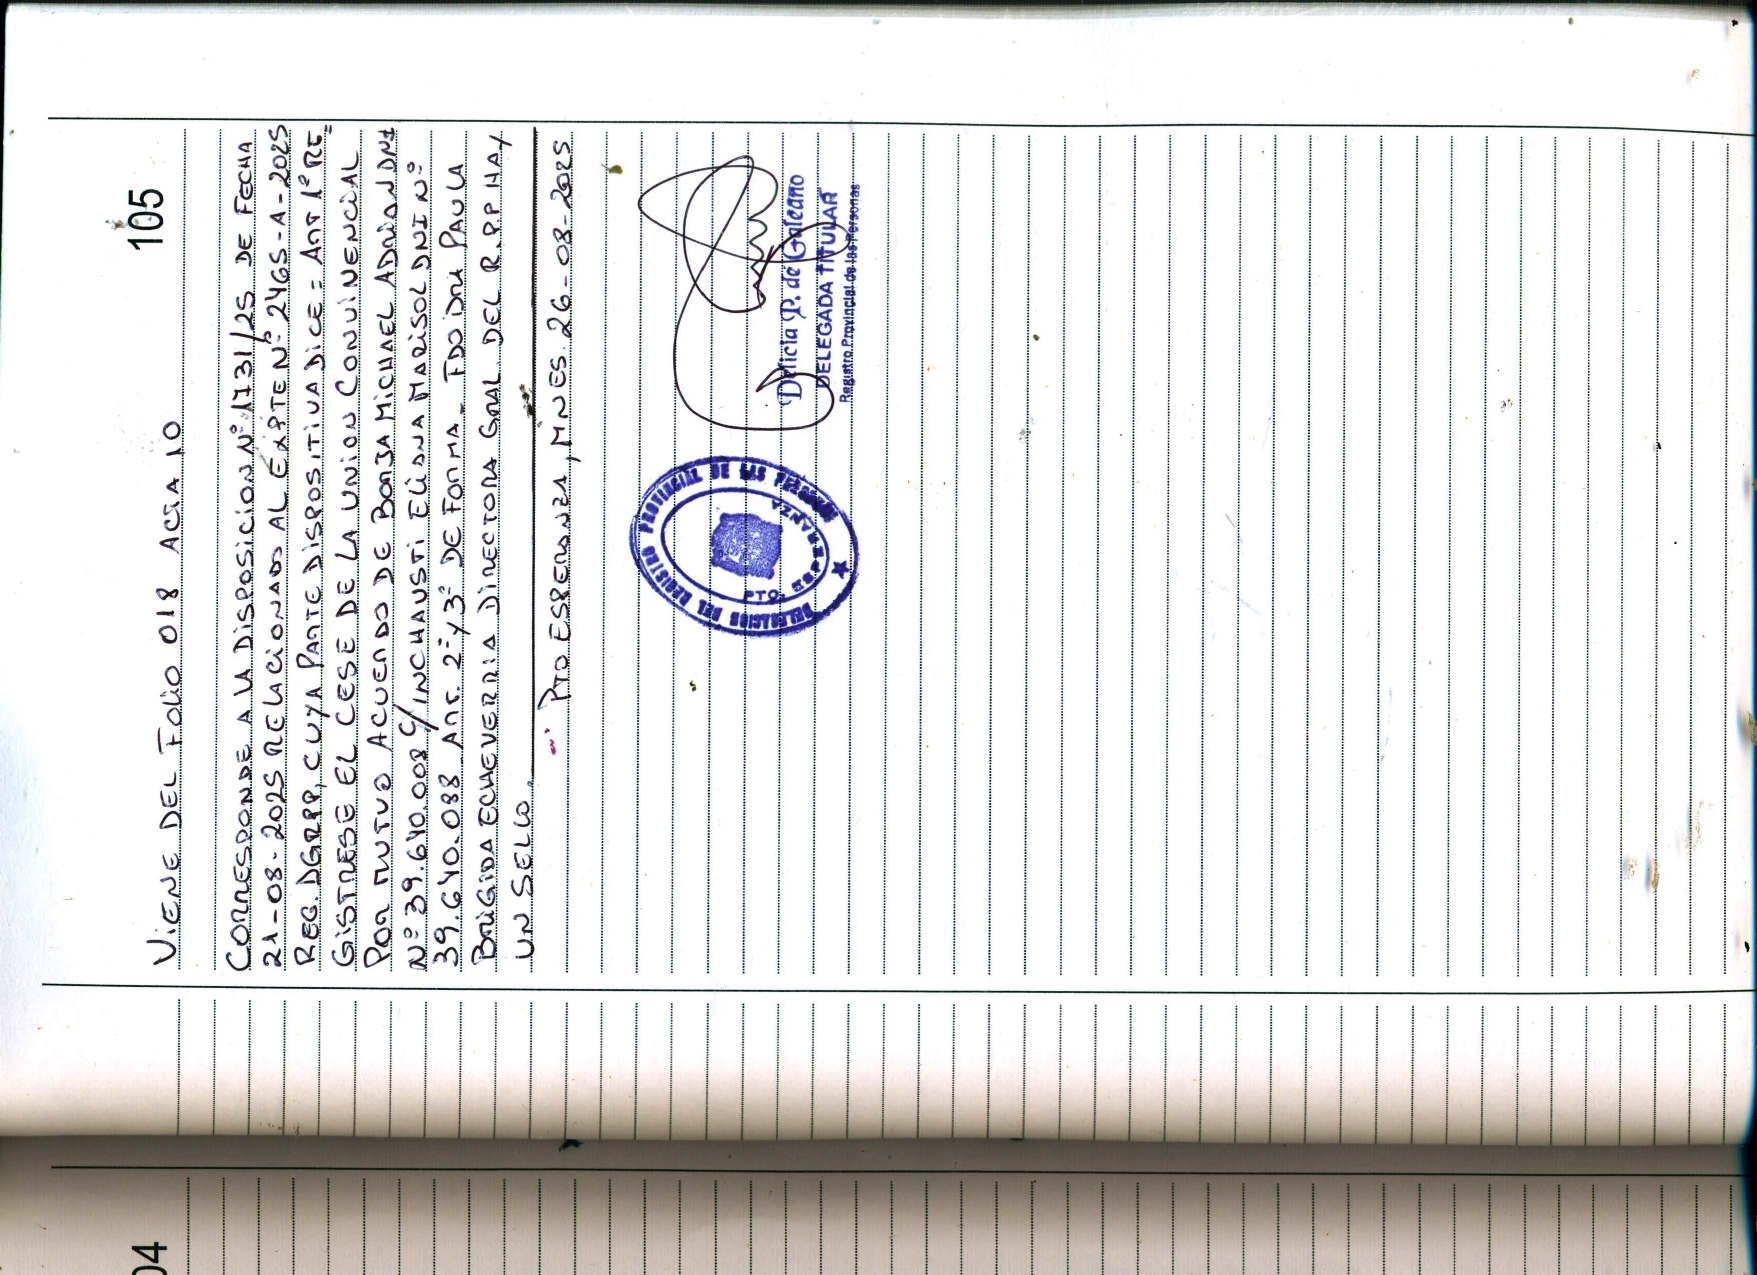 105
VIENE DEL FOLIO 018 ACTA 10
CORRESPONDE A LA DISPOSICION Nº 1731/25 DE FECHA
21-08-2025 RELACIONADO AL EXPTE Nº 2465-A-2025
REG. DGRPP, CUYA PARTE DISPOSITIVA DICE: ART 1º RE=
GISTRESE EL CESE DE LA UNION CONVINENCIAL
POR MUTUO ACUERDO DE BORJA MICHAEL ADRIAN DNI
Nº 39.640.008 C/INCHAUSTI ELIANA MARISOL DNI Nº
39.640.088 ART. 2º Y 3º DE FORMA - FDO DRA PAULA
BRIGIDA ECHEVERRIA DIRECTORA GRAL DEL R.P.P HAY
UN SELLO
PTO ESPERANZA, MNES. 26-08-2025
DELEGACION DEL REGISTRO PROVINCIAL DE LAS PERSONAS
PTO. ESPERANZA
Delicia P. de Galeano
DELEGADA TITULAR
Registro Provincial de las Personas
04